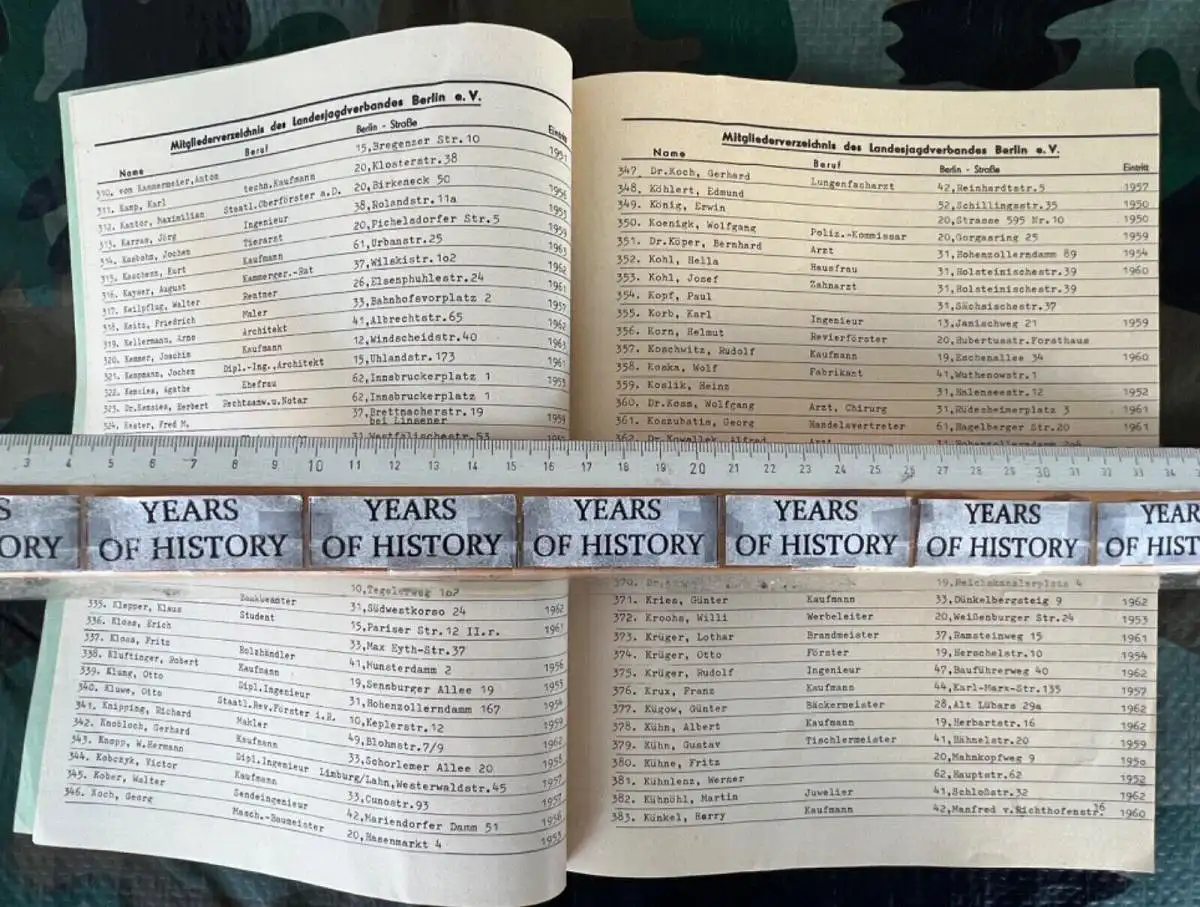 Mitgliederverzeichnis des Landesjagdverbandes Berlin e.V.
Name Beruf Berlin - Straße Eintritt
310. von Kammermeier, Anton 15,Bregenzer Str. 10 1951
311. Kamp, Karl techn.Kaufmann 20,Klosterstr.38
312. Kantor, Maximilian Staatl.Oberförster a.D. 20,Birkeneck 50 1956
313. Karras, Jörg Ingenieur 38,Rolandstr.11a 1953
314. Kasbohm, Jochen Tierarzt 20,Pichelsdorfer Str.5 1959
315. Kaschenz, Kurt Kaufmann 61,Urbanstr.25 1963
316. Kayser, August Kammerger.-Rat 37,Wilskistr.102 1962
317. Keilpflug, Walter Rentner 26,Elsenphuhlestr.24 1961
318. Keitz, Friedrich Maler 33,Bahnhofsvorplatz 2 1957
319. Kellermann, Arno Architekt 41,Albrechtstr.65 1962
320. Kemmer, Joachim Kaufmann 12,Windscheidstr.40 1963
321. Kempmann, Jochen Dipl.-Ing.,Architekt 15,Uhlandstr.173 1961
322. Kenzies, Agathe Ehefrau 62,Innsbruckerplatz 1 1953
323. Dr.Kenzies, Herbert Rechtsanw.u.Notar 62,Innsbruckerplatz 1
324. Kester, Fred M. 37,Brettnacherstr.19 1959
bei Linsener
31,Westfälischestr.53
10,Tegelerweg 102
335. Klepper, Klaus Bankbeamter 31,Südwestkorso 24 1962
336. Kloss, Erich Student 15,Pariser Str.12 II.r. 1961
337. Kloss, Fritz 33,Max Eyth-Str.37
338. Kluftinger, Robert Holzhändler 41,Munsterdamm 2 1956
339. Klung, Otto Kaufmann 19,Sensburger Allee 19 1955
340. Kluwe, Otto Dipl.Ingenieur 31,Hohenzollerndamm 167 1954
341. Knipping, Richard Staatl.Rev.Förster i.R. 10,Keplerstr.12 1959
342. Knobloch, Gerhard Makler 49,Blohmstr.7/9 1962
343. Knopp, W.Hermann Kaufmann 33,Schorlemer Allee 20 1958
344. Kobczyk, Victor Dipl.Ingenieur Limburg/Lahn,Westerwaldstr.45 1957
345. Kober, Walter Kaufmann 33,Cunostr.93 1957
346. Koch, Georg Sendeingenieur 42,Mariendorfer Damm 51 1958
Masch.-Baumeister 20,Hasenmarkt 4 1953
Mitgliederverzeichnis des Landesjagdverbandes Berlin e.V.
Name Beruf Berlin - Straße Eintritt
347. Dr.Koch, Gerhard Lungenfacharzt 42,Reinhardtstr.5 1957
348. Köhlert, Edmund 52,Schillingstr.35 1950
349. König, Erwin 20,Strasse 595 Nr.10 1950
350. Koenigk, Wolfgang Poliz.-Kommissar 20,Gorgasring 25 1959
351. Dr.Köper, Bernhard Arzt 31,Hohenzollerndamm 89 1954
352. Kohl, Hella Hausfrau 31,Holsteinischestr.39 1960
353. Kohl, Josef Zahnarzt 31,Holsteinischestr.39
354. Kopf, Paul 31,Sächsischestr.37
355. Korb, Karl Ingenieur 13,Janischweg 21 1959
356. Korn, Helmut Revierförster 20,Hubertusstr.Forsthaus
357. Koschwitz, Rudolf Kaufmann 19,Eschenallee 34 1960
358. Koska, Wolf Fabrikant 41,Wuthenowstr.1
359. Koslik, Heinz 31,Halenseestr.12 1952
360. Dr.Koss, Wolfgang Arzt, Chirurg 31,Rüdesheimerplatz 3 1961
361. Koszubatis, Georg Handelsvertreter 61,Hagelberger Str.20 1961
362. Dr.Kowallek, Alfred Arzt
370. Dr. 19,Reichskanzlerplatz 4
371. Kries, Günter Kaufmann 33,Dünkelbergsteig 9 1962
372. Kroohs, Willi Werbeleiter 20,Weißenburger Str.24 1953
373. Krüger, Lothar Brandmeister 37,Ramsteinweg 15 1961
374. Krüger, Otto Förster 19,Herschelstr.10 1954
375. Krüger, Rudolf Ingenieur 47,Bauführerweg 40 1962
376. Krux, Franz Kaufmann 44,Karl-Marx-Str.135 1957
377. Kugow, Günter Bäckermeister 28,Alt Lübars 29a 1962
378. Kühn, Albert Kaufmann 19,Herbartstr.16 1962
379. Kühn, Gustav Tischlermeister 41,Hähnelstr.20 1959
380. Kühne, Fritz 20,Mahnkopfweg 9 1950
381. Kühnlenz, Werner 62,Hauptstr.62 1952
382. Kühnöhl, Martin Juwelier 41,Schloßstr.32 1962
383. Künkel, Harry Kaufmann 42,Manfred v.Richthofenstr.16 1960
3 4 5 6 7 8 9 10 11 12 13 14 15 16 17 18 19 20 21 22 23 24 25 26 27 28 29 30 31 32 33 34
S YEARS YEARS YEARS YEARS YEARS YEAR
ORY OF HISTORY OF HISTORY OF HISTORY OF HISTORY OF HISTORY OF HIST